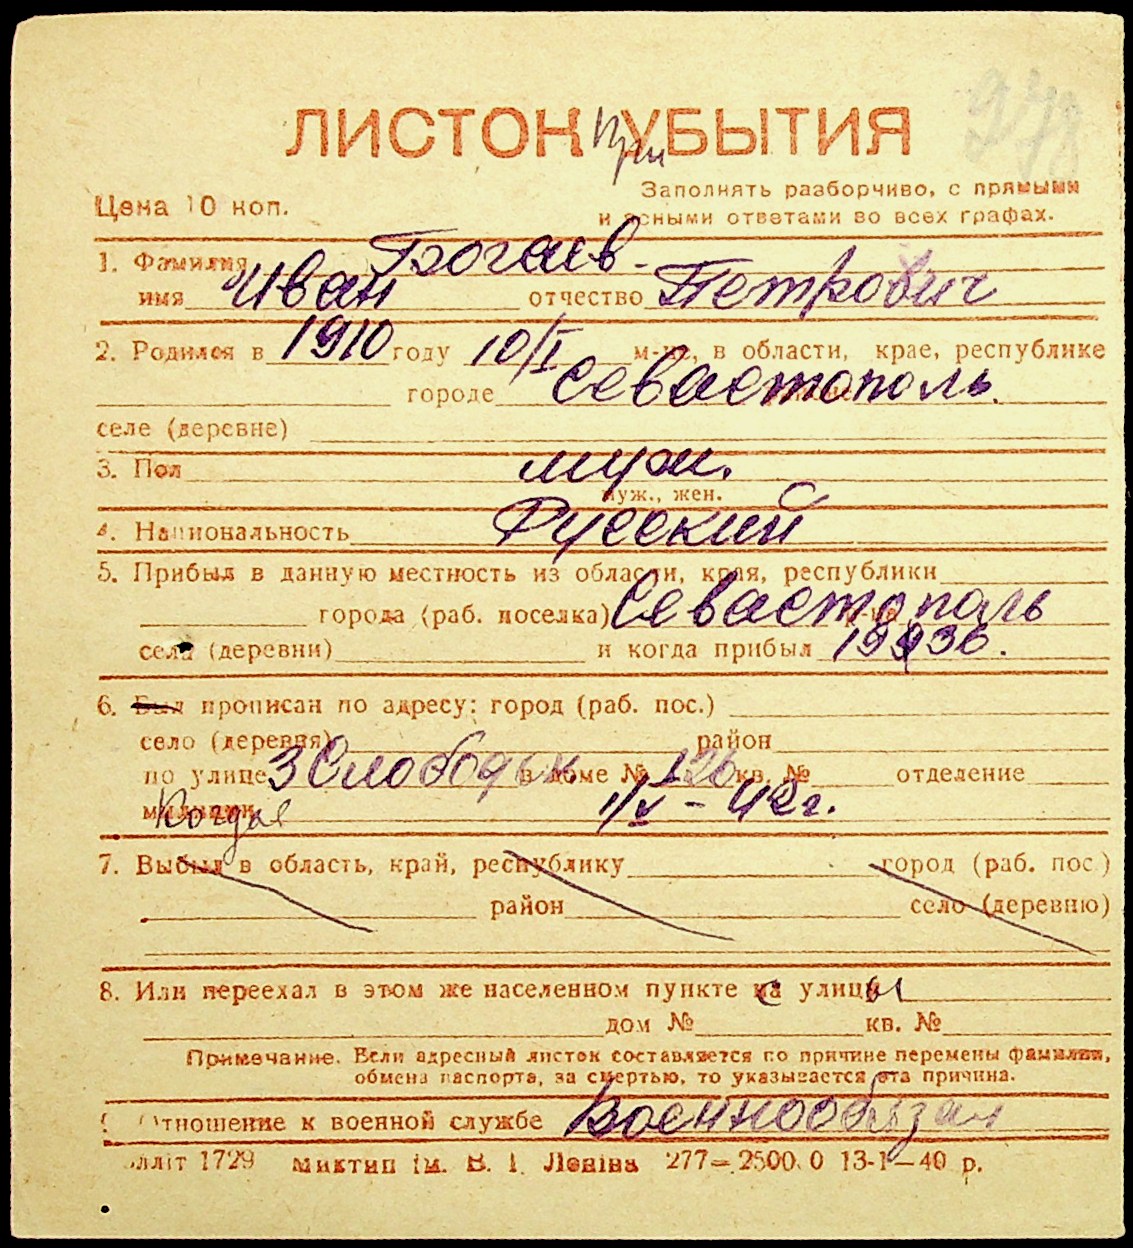 978
ЛИСТОК УБЫТИЯ
При
Цена 10 коп.
Заполнять разборчиво, с прямыми
и ясными ответами во всех графах.
1. Фамилия
имя Иван отчество Петрович
2. Родился в 1910 году 10/I м-це, в области, крае, республике
городе Севастополь.
селе (деревне)
3. Пол муж.
муж., жен.
4. Национальность Русский
5. Прибыл в данную местность из области, края, республики
города (раб. поселка) Севастополь
села (деревни) и когда прибыл 1936.
6. Был прописан по адресу: город (раб. пос.)
село (деревня) район
по улице 3 Слободск в доме № 126 кв. № отделение
милиции Когда 1/V - 42 г.
7. Выбыл в область, край, республику город (раб. пос.)
район село (деревню)
8. Или переехал в этом же населенном пункте с улицы
дом № кв. №
Примечание. Если адресный листок составляется по причине перемены фамилии,
обмена паспорта, за смертью, то указывается эта причина.
Отношение к военной службе Военнообязан
олліт 1729 Миктип ім. В. І. Леніна 277— 2500 0 13-1—40 р.